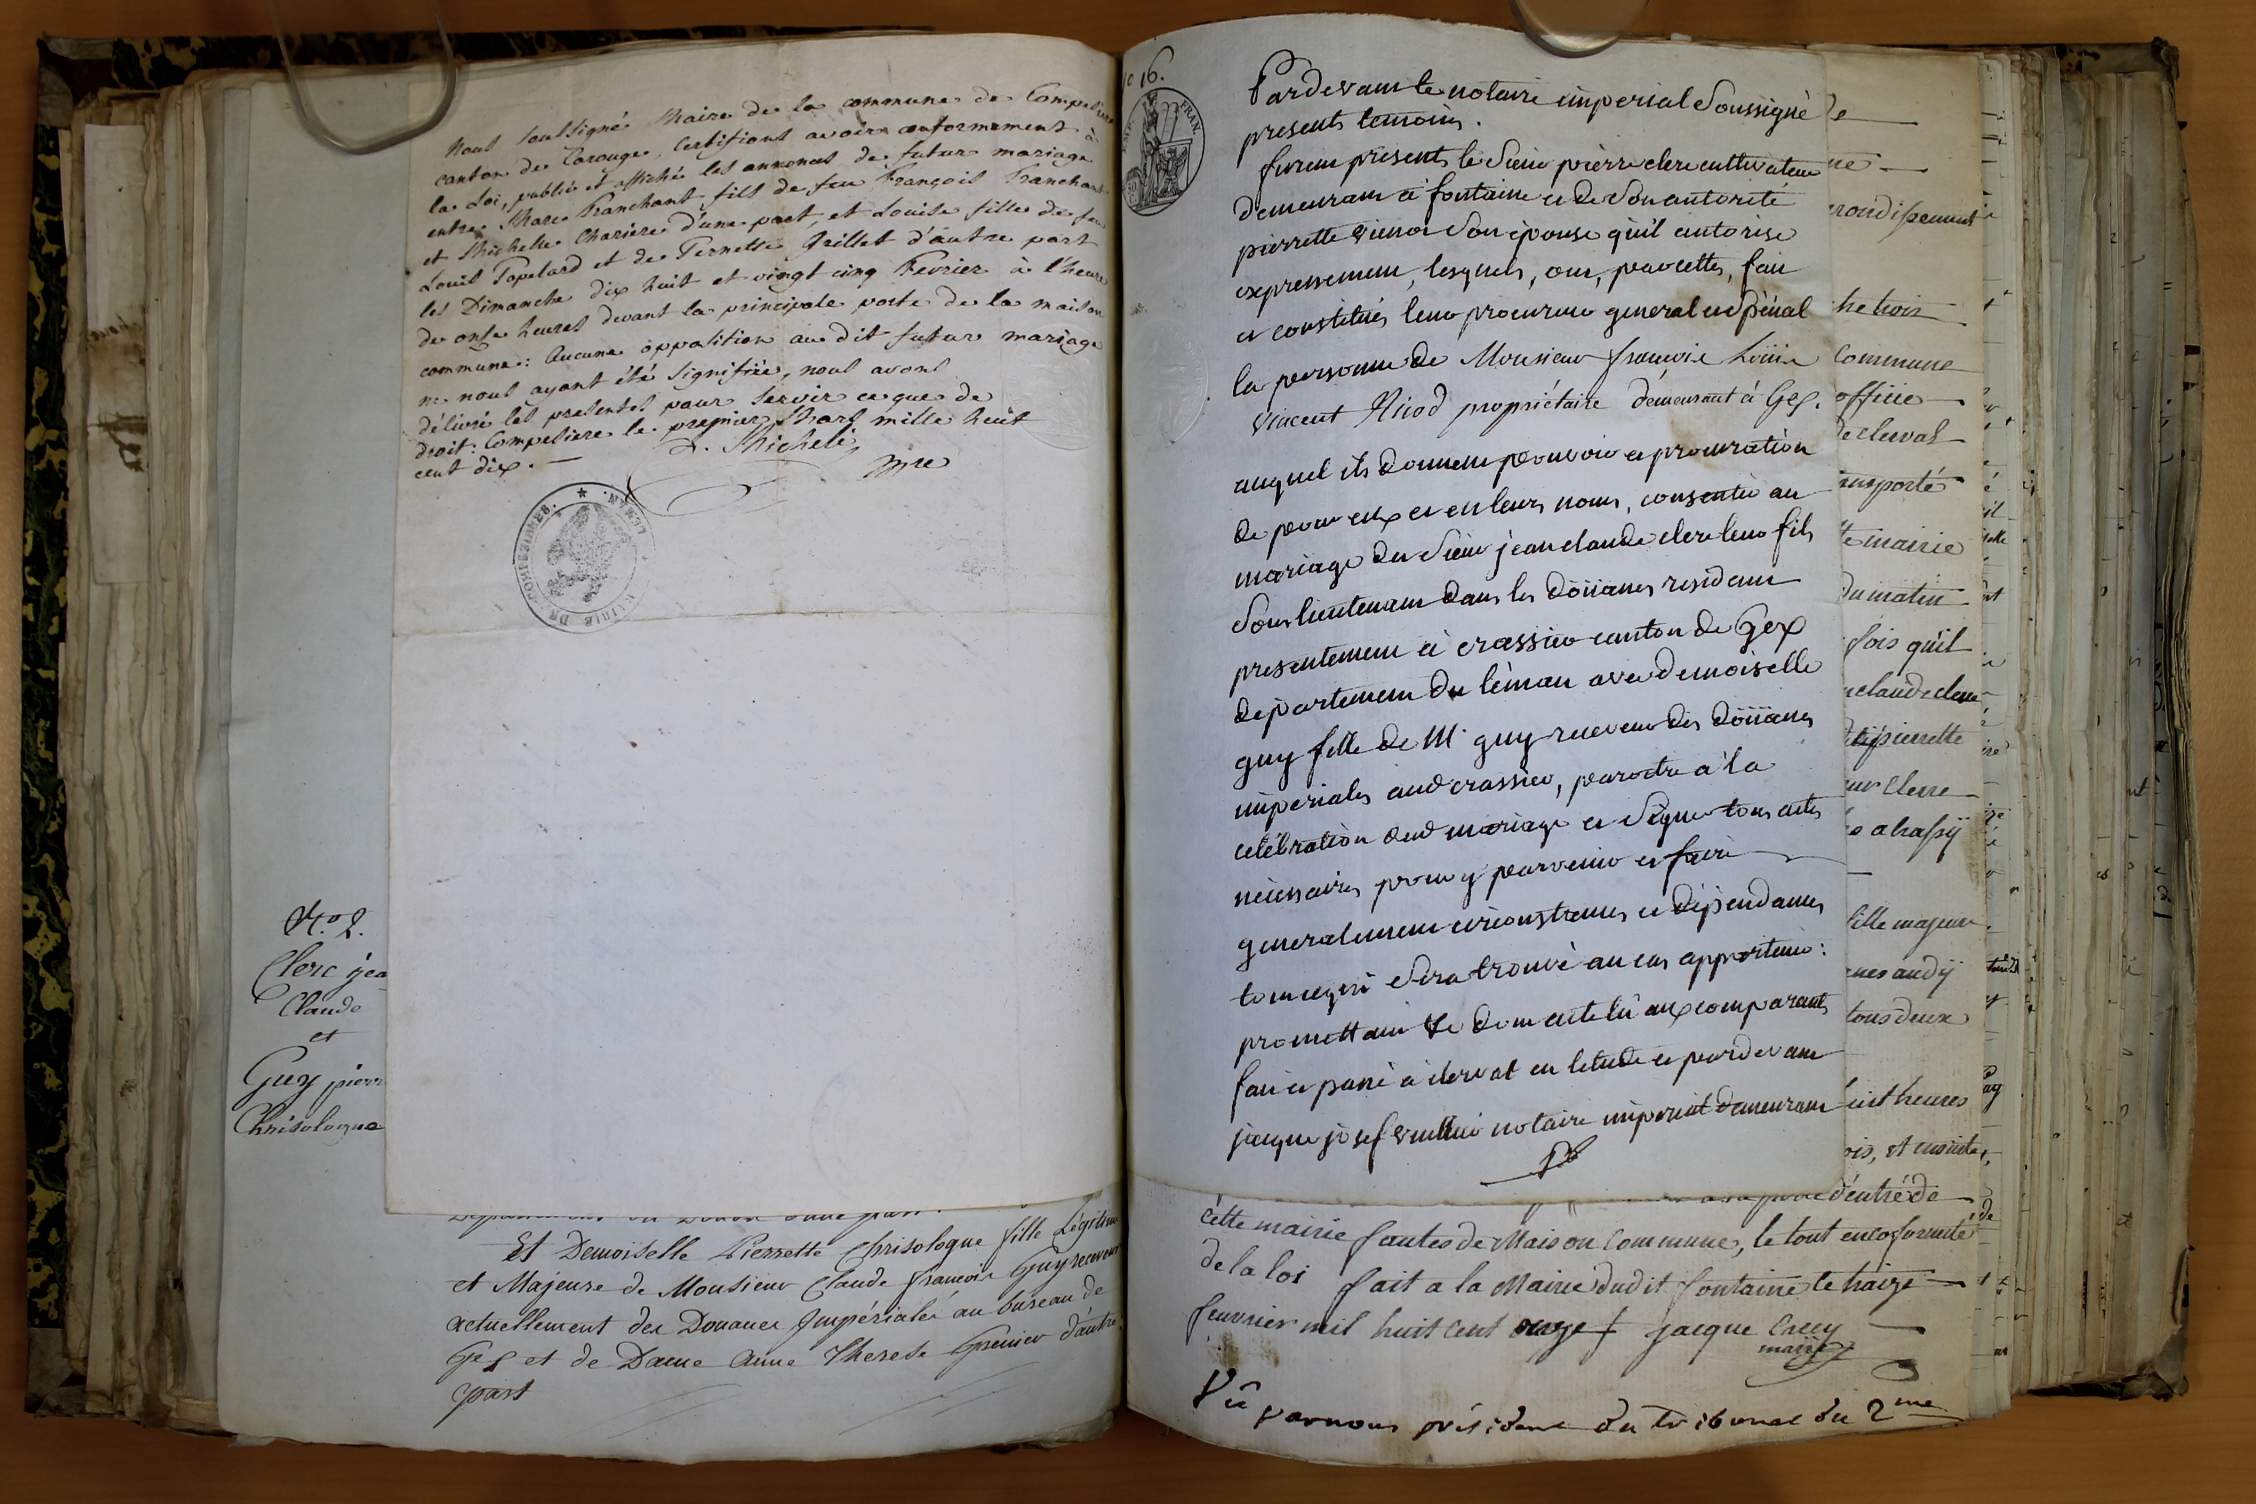 Nous soussigné Maire de la commune de Compesiere
canton de Carouge, Certifions avoir conformement à
la Loi, publié et affiché les annonces de futur mariage
entre Marc Tranchant fils de feu François Tranchant
et Michelle Chariere d'une part, et Louise fille de feu
Louis Papelard et de Pernette Grillet d'autre part
les Dimanche dix huit et vingt cinq Fevrier à l'heure
de onse heures devant la principale porte de la maison
commune: Aucune opposition au dit futur mariage
ne nous ayant été signifiée, nous avons
délivré les presentes pour servir ce que de
droit. Compesiere le premier Mars mille huit
cent dix. —
Micheli
mre
MAIRIE DE COMPESIERES. LEMAN.
N.o 2.
Clerc jea
Claude
et
Guy pierr
Chrisologue
Et Demoiselle Pierrette Chrisologue fille Légitime
et Majeure de Monsieur Claude françois Guy receveur
actuellement des Douanes Impériales au bureau de
Gex et de Dame Anne Therese Grenier d'autre
part
16.
EMP. FRAN.
Pardevant le notaire imperial Soussigné
presents temoins.
furent présents le Sieur pierre clerc cultivateur
demeurant à fontaine et de Son autorité
pierrette Son épouse qu'il autorise
expressement, lesquels, ont, par cettes, fait
et constitués leur procureur general et spécial
la personne de Monsieur françois Louis
Vincent Nicod propriétaire demeurant à Gex.
auquel ils donnent pouvoir et procuration
de pour eux et en leurs noms, consentir au
mariage du Sieur jean claude clerc leur fils
Sous lieutenant dans les doüanes residant
presentement à crassier canton de Gex
departement du léman avec demoiselle
guy fille de Mr guy receveur des doüanes
imperiales aud crassier, paroitre à la
célébration dud mariage et Signer tous actes
nécessaires pour y parvenir et faire
generalement circonstances et dépendances
tout ce qui Sera trouvé au cas appartenir:
promettant &c dont acte lû aux comparants
fait et passé à clerval en l'etude et pardevant
jacque josef vuillier notaire imperial demeurant
rondissement
che trois
Commune
office
de clerval
ansporté
te mairie
du matin
fois qu'il
n claude clerc
pierrette
eur Clerc
fille majeur
tous deux
uit heures
ois, et ensuite
d'entré de
cette mairie fautes de Maison Commune, le tout en conformité
de la loi fait a la Mairie dudit fontaine le traize
feuvrier mil huit cent onze jacque Cuccy
maire
Vu par nous président du tribunal du 2me